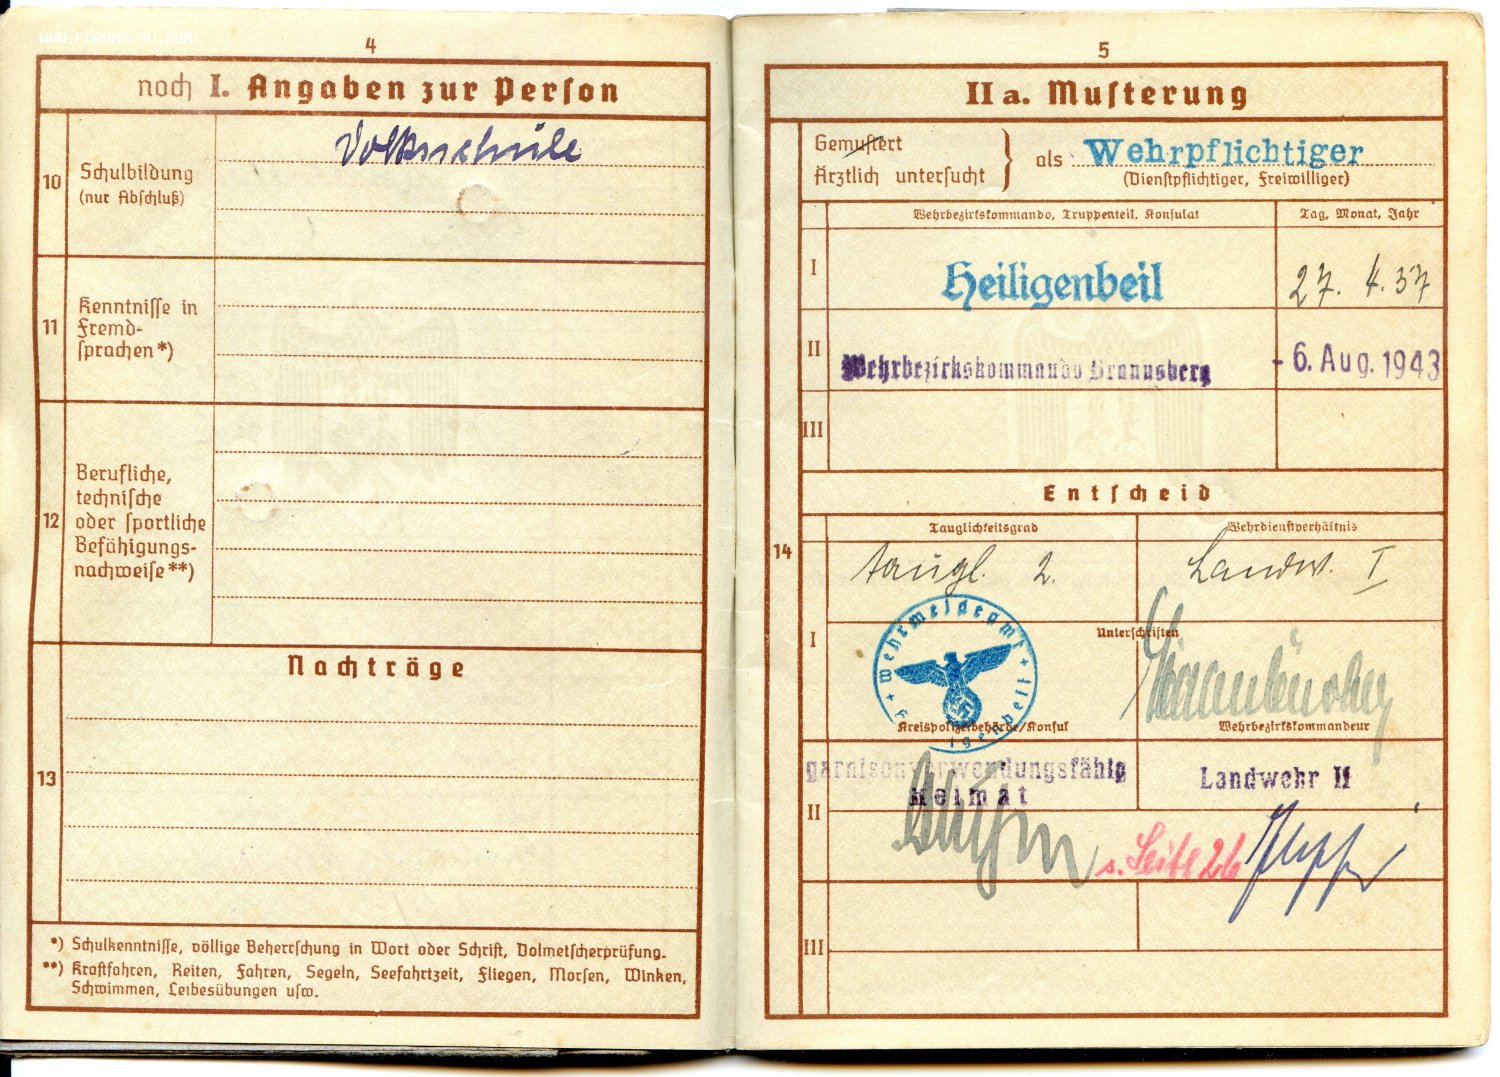 WWW.FORUMS-SU.COM
4
noch I. Angaben zur Person
10
Schulbildung
(nur Abschluß)
Volksschule
11
Kenntnisse in
Fremd-
sprachen*)
12
Berufliche,
technische
oder sportliche
Befähigungs-
nachweise**)
Nachträge
13
*) Schulkenntnisse, völlige Beherrschung in Wort oder Schrift, Dolmetscherprüfung.
**) Kraftfahren, Reiten, Fahren, Segeln, Seefahrtzeit, Fliegen, Morsen, Winken,
Schwimmen, Leibesübungen usw.
5
IIa. Musterung
14
Gemustert
Ärztlich untersucht
als Wehrpflichtiger
(Dienstpflichtiger, Freiwilliger)
Wehrbezirkskommando, Truppenteil, Konsulat
Tag, Monat, Jahr
I
Heiligenbeil
27. 4. 37
II
Wehrbezirkskommando Braunsberg
- 6. Aug. 1943
III
Entscheid
Tauglichkeitsgrad
Wehrdienstverhältnis
I
taugl. 2.
Landw. I
Unterschriften
Wehrmeldeamt Heiligenbeil
Kreispolizeibehörde/Konsul
Wehrbezirkskommandeur
II
garnisonverwendungsfähig
Heimat
Landwehr II
s. Seite 26
III